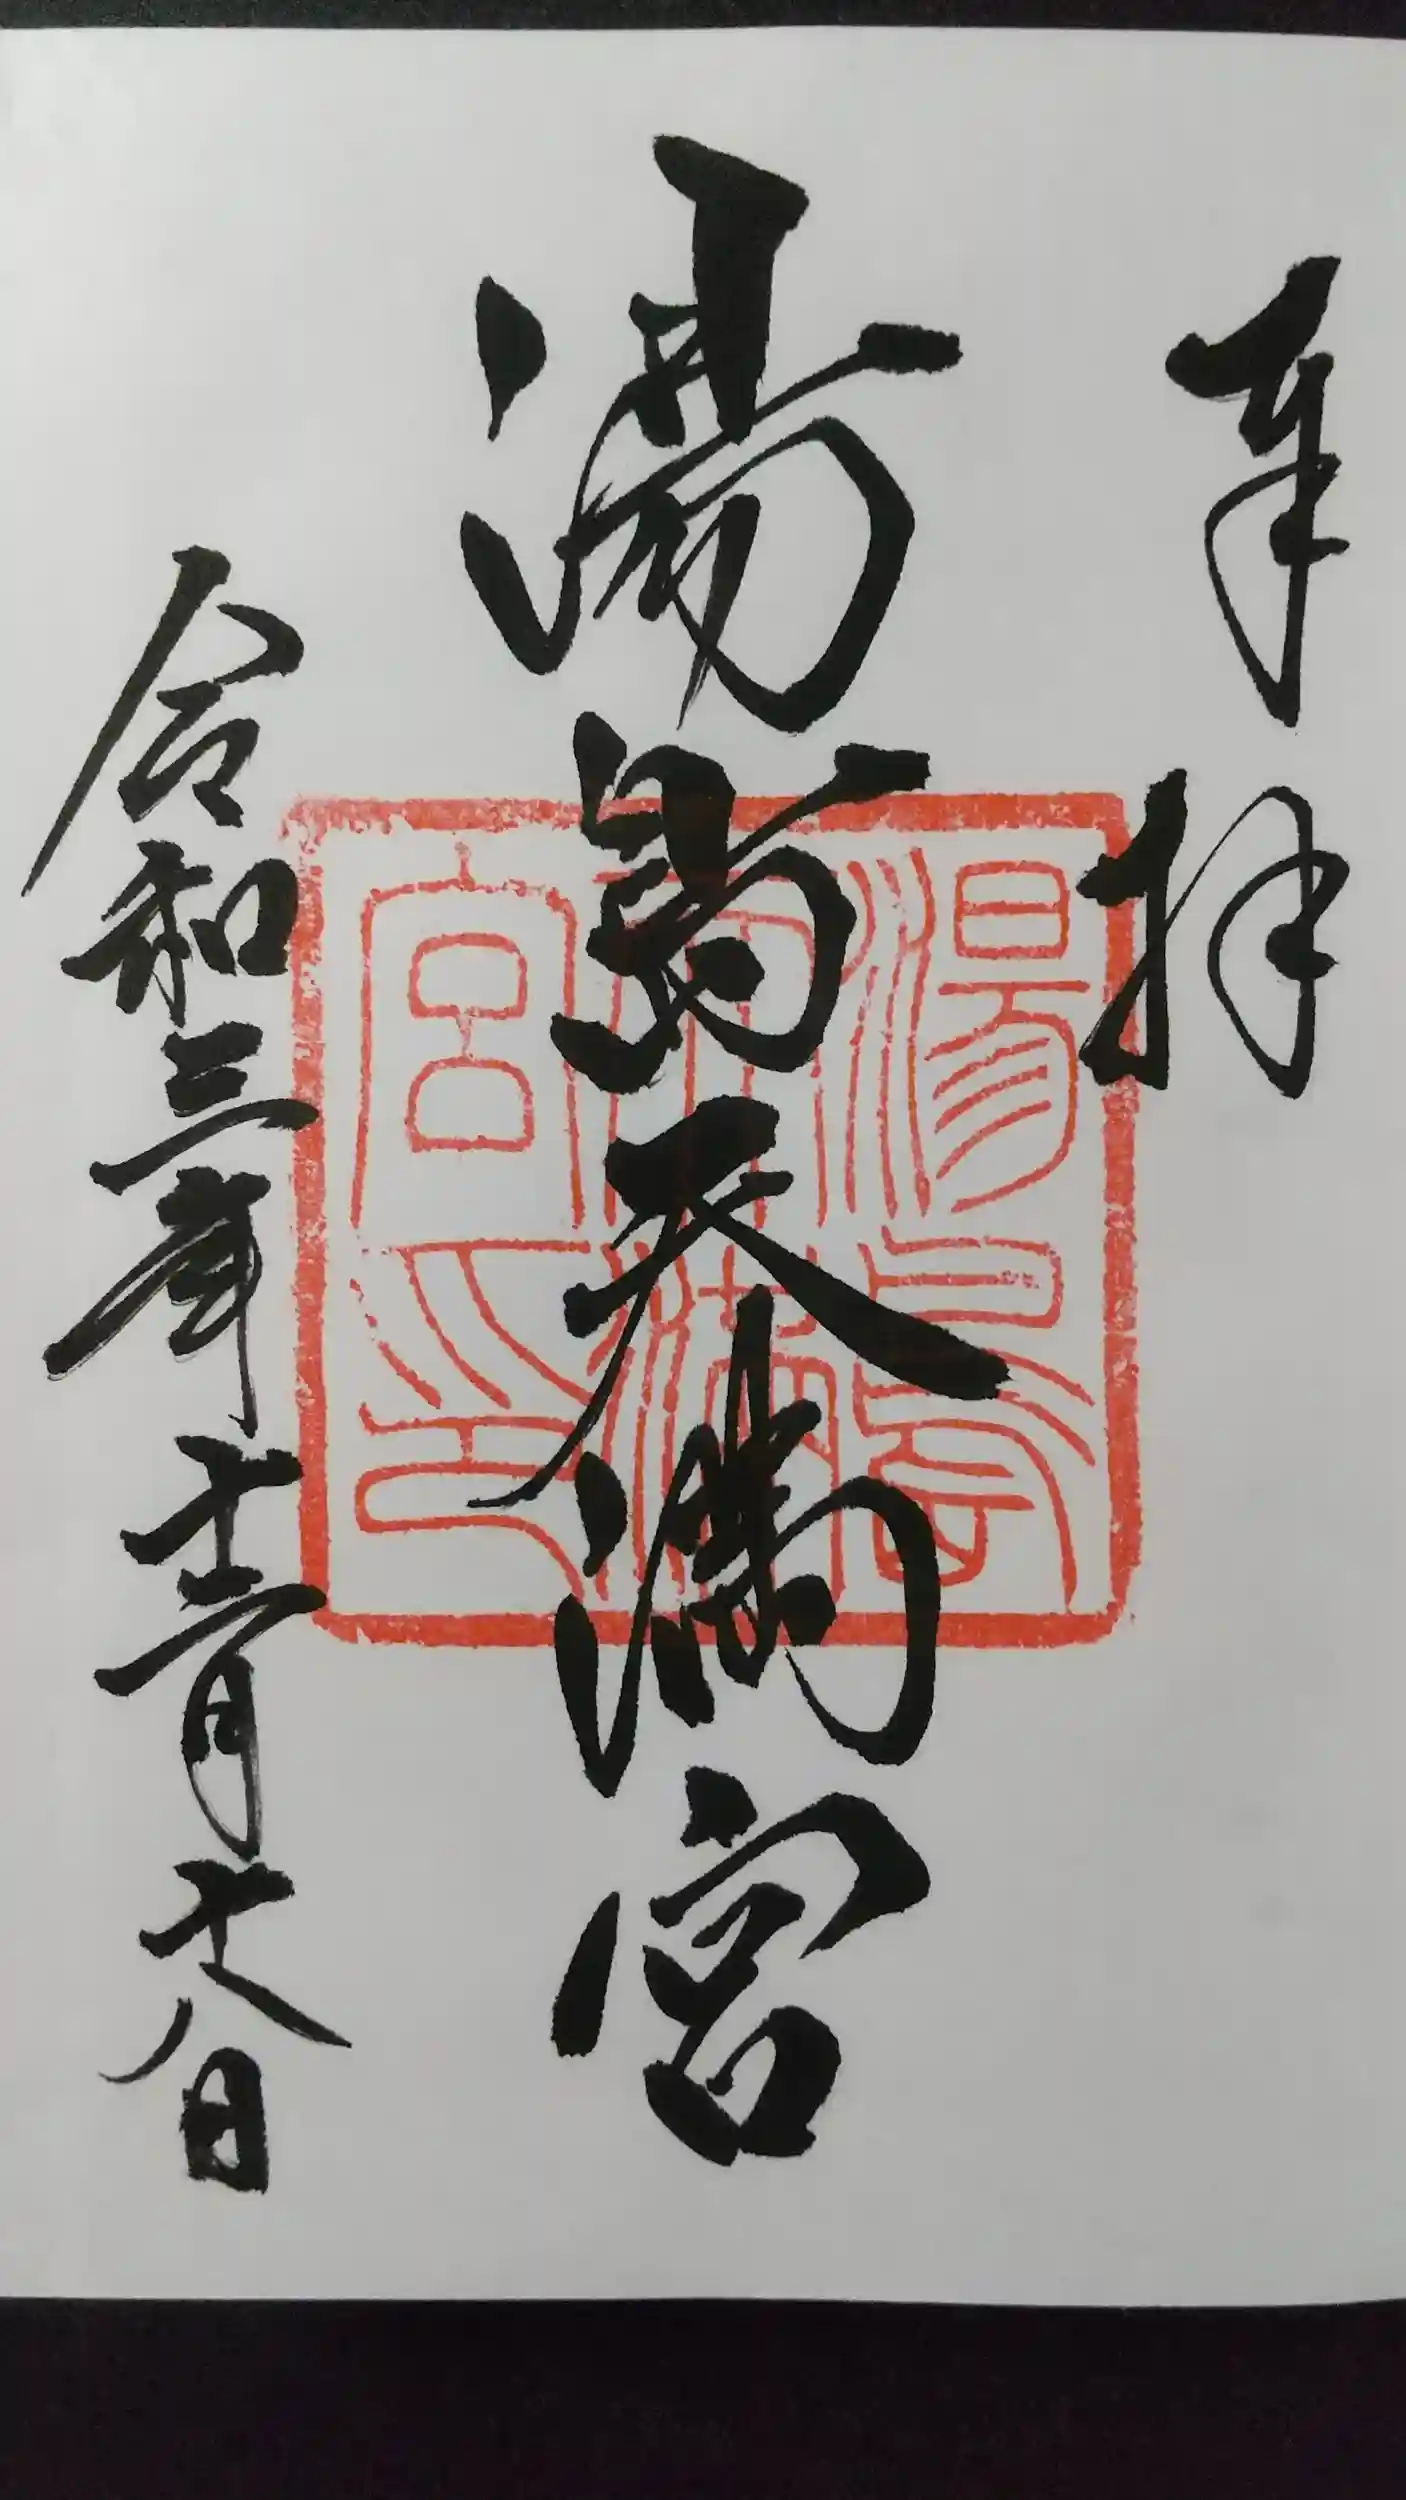 奉拝
湯島天満宮
令和三年十二月十八日
湯島
天満
宮之印